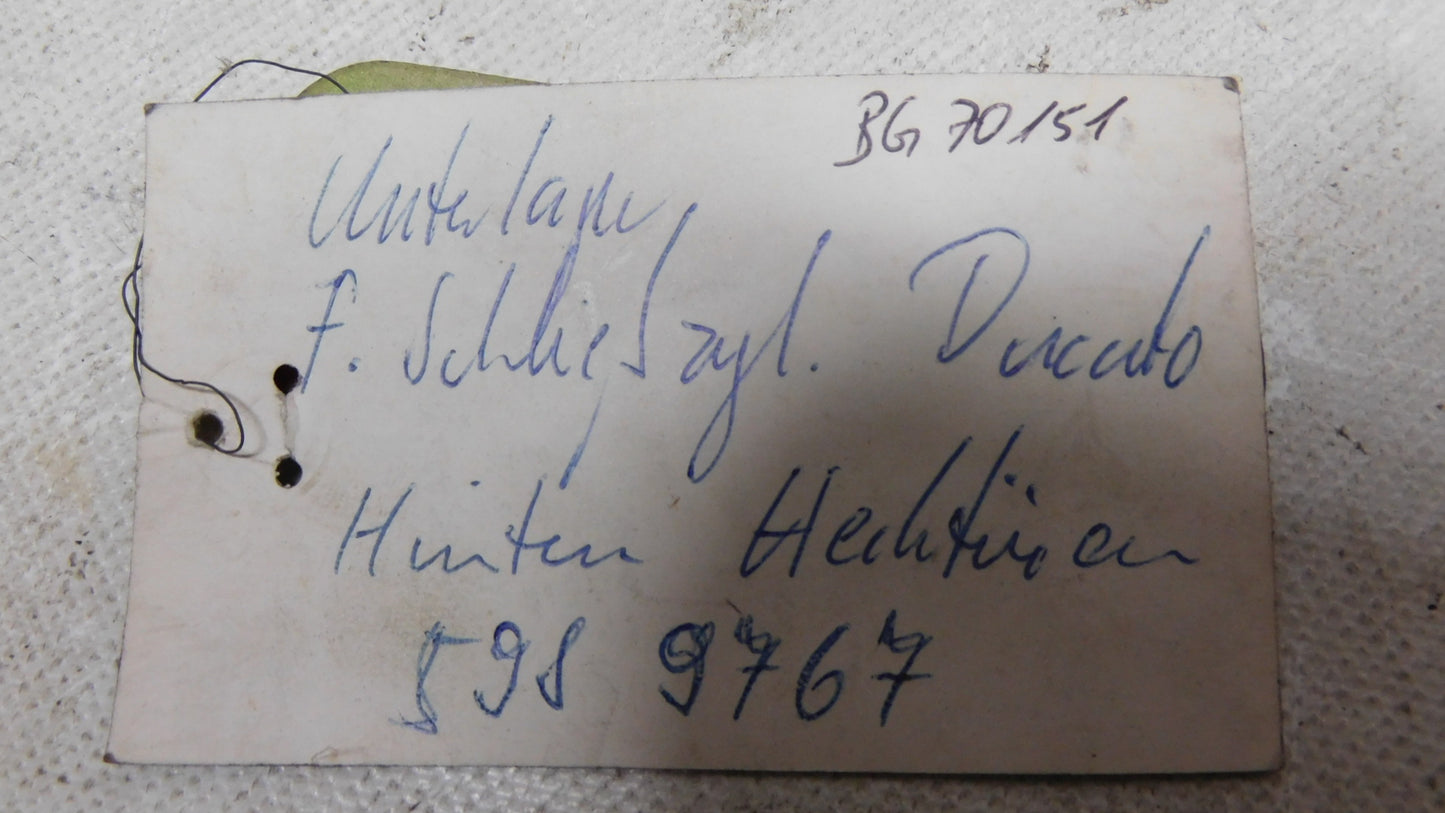 BG 70151
Unterlage
f. Schließzyl. Ducato
Hinten Hecktüren
598 9767